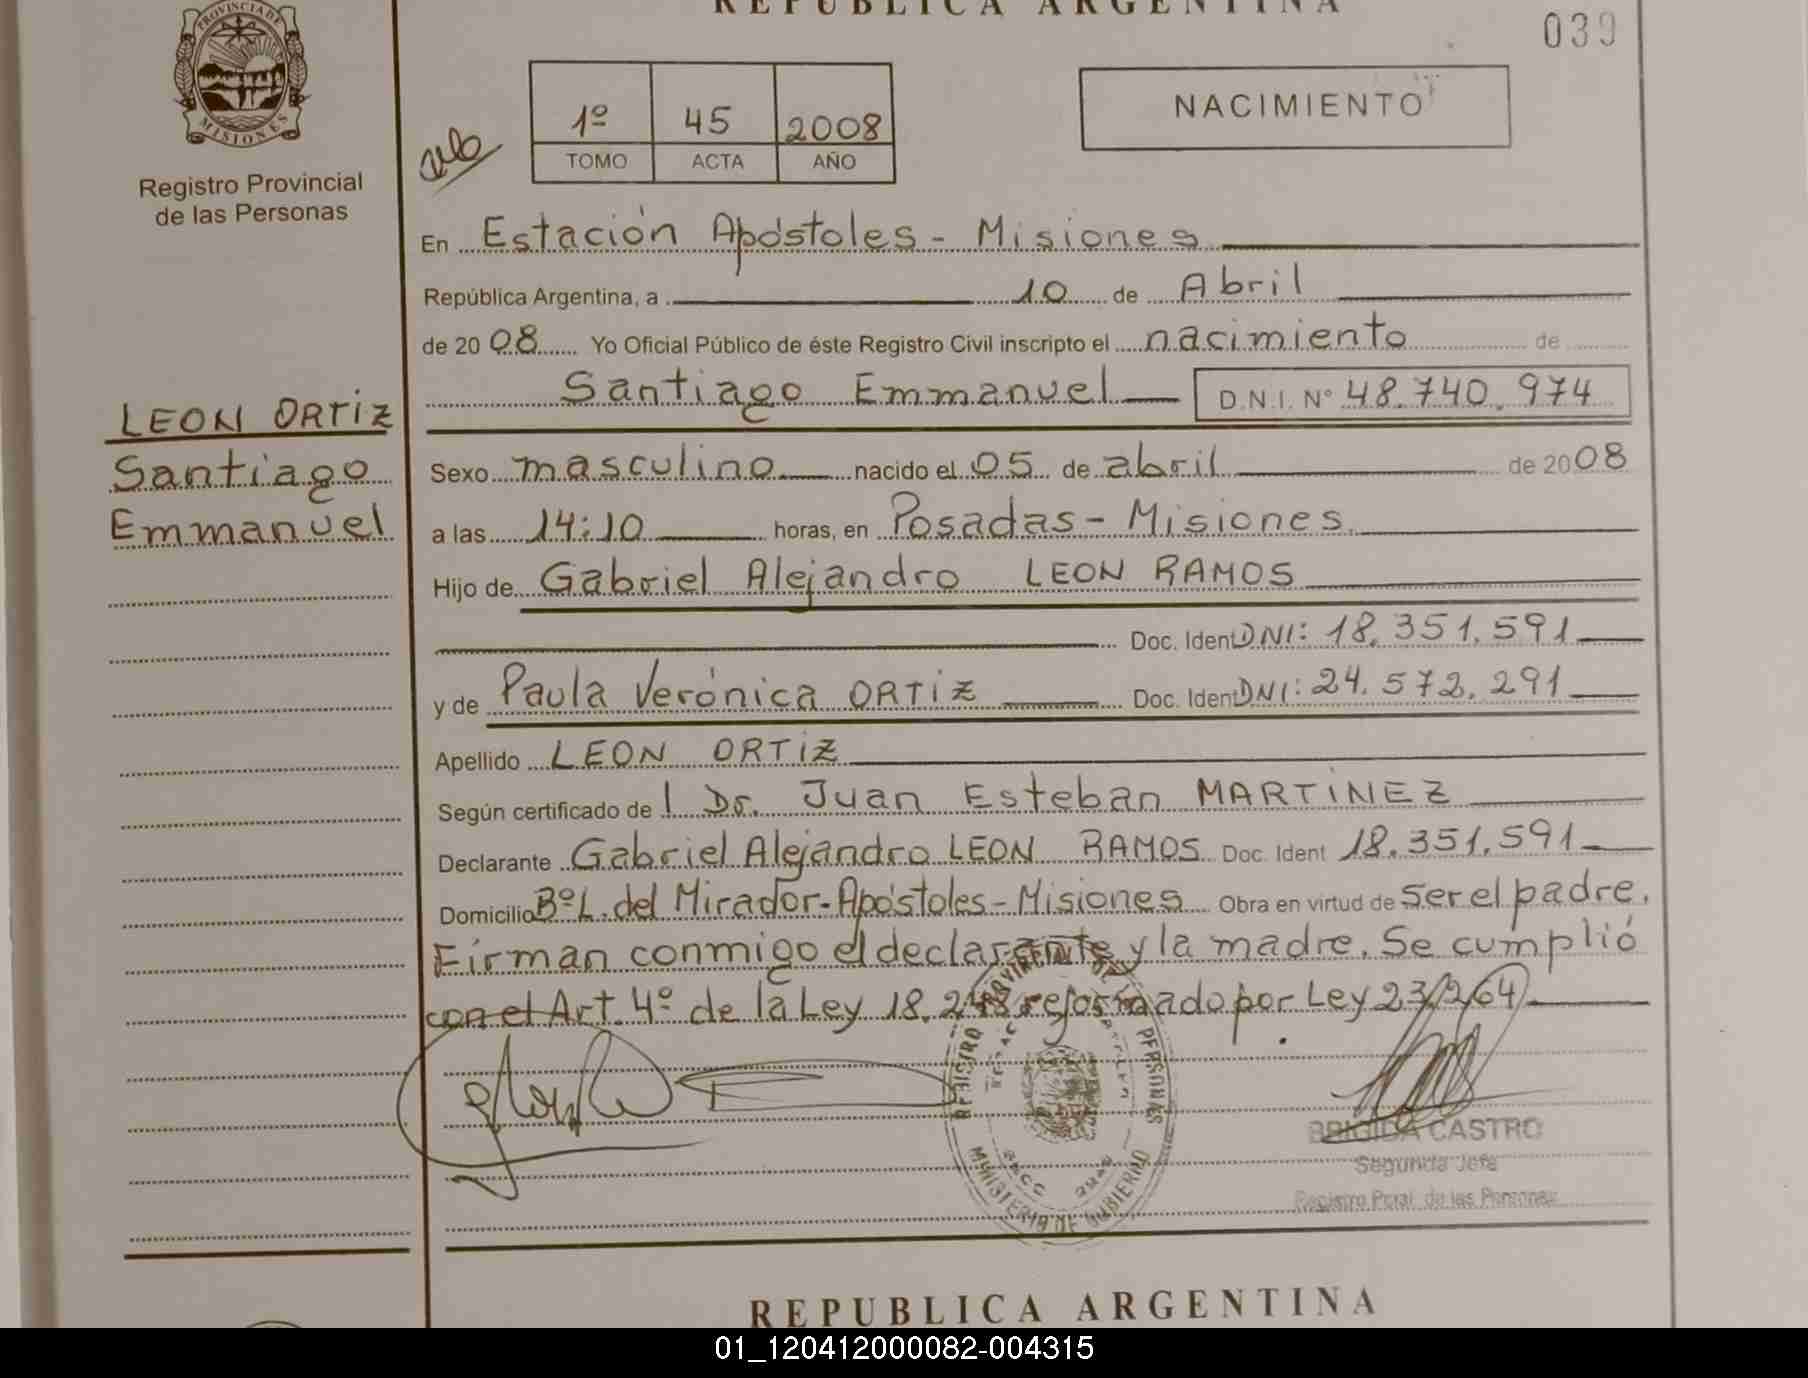 REPUBLICA ARGENTINA
039
PROVINCIA DE
MISIONES
Registro Provincial
de las Personas
1º 45 2008
TOMO ACTA AÑO
NACIMIENTO
En Estación Apóstoles - Misiones
República Argentina, a 10 de Abril
de 2008 Yo Oficial Público de éste Registro Civil inscripto el nacimiento de
Santiago Emmanuel D.N.I. Nº 48.740.974
LEON ORTIZ
Santiago
Emmanuel
Sexo masculino nacido el 05 de abril de 2008
a las 14:10 horas, en Posadas - Misiones.
Hijo de Gabriel Alejandro LEON RAMOS
Doc. Ident DNI: 18.351.591
y de Paula Verónica ORTIZ Doc. Ident DNI: 24.572.291
Apellido LEON ORTIZ
Según certificado de l Dr. Juan Esteban MARTINEZ
Declarante Gabriel Alejandro LEON RAMOS Doc. Ident 18.351.591
Domicilio Bº L. del Mirador - Apóstoles - Misiones Obra en virtud de ser el padre.
Firman conmigo el declarante y la madre. Se cumplió
con el Art. 4º de la Ley 18.248 reformado por Ley 23.264
REGISTRO PROVINCIAL DE LAS PERSONAS
MINISTERIO DE GOBIERNO
BRIGIDA CASTRO
Segunda Jefa
Registro Pcial. de las Personas
REPUBLICA ARGENTINA
01_120412000082-004315